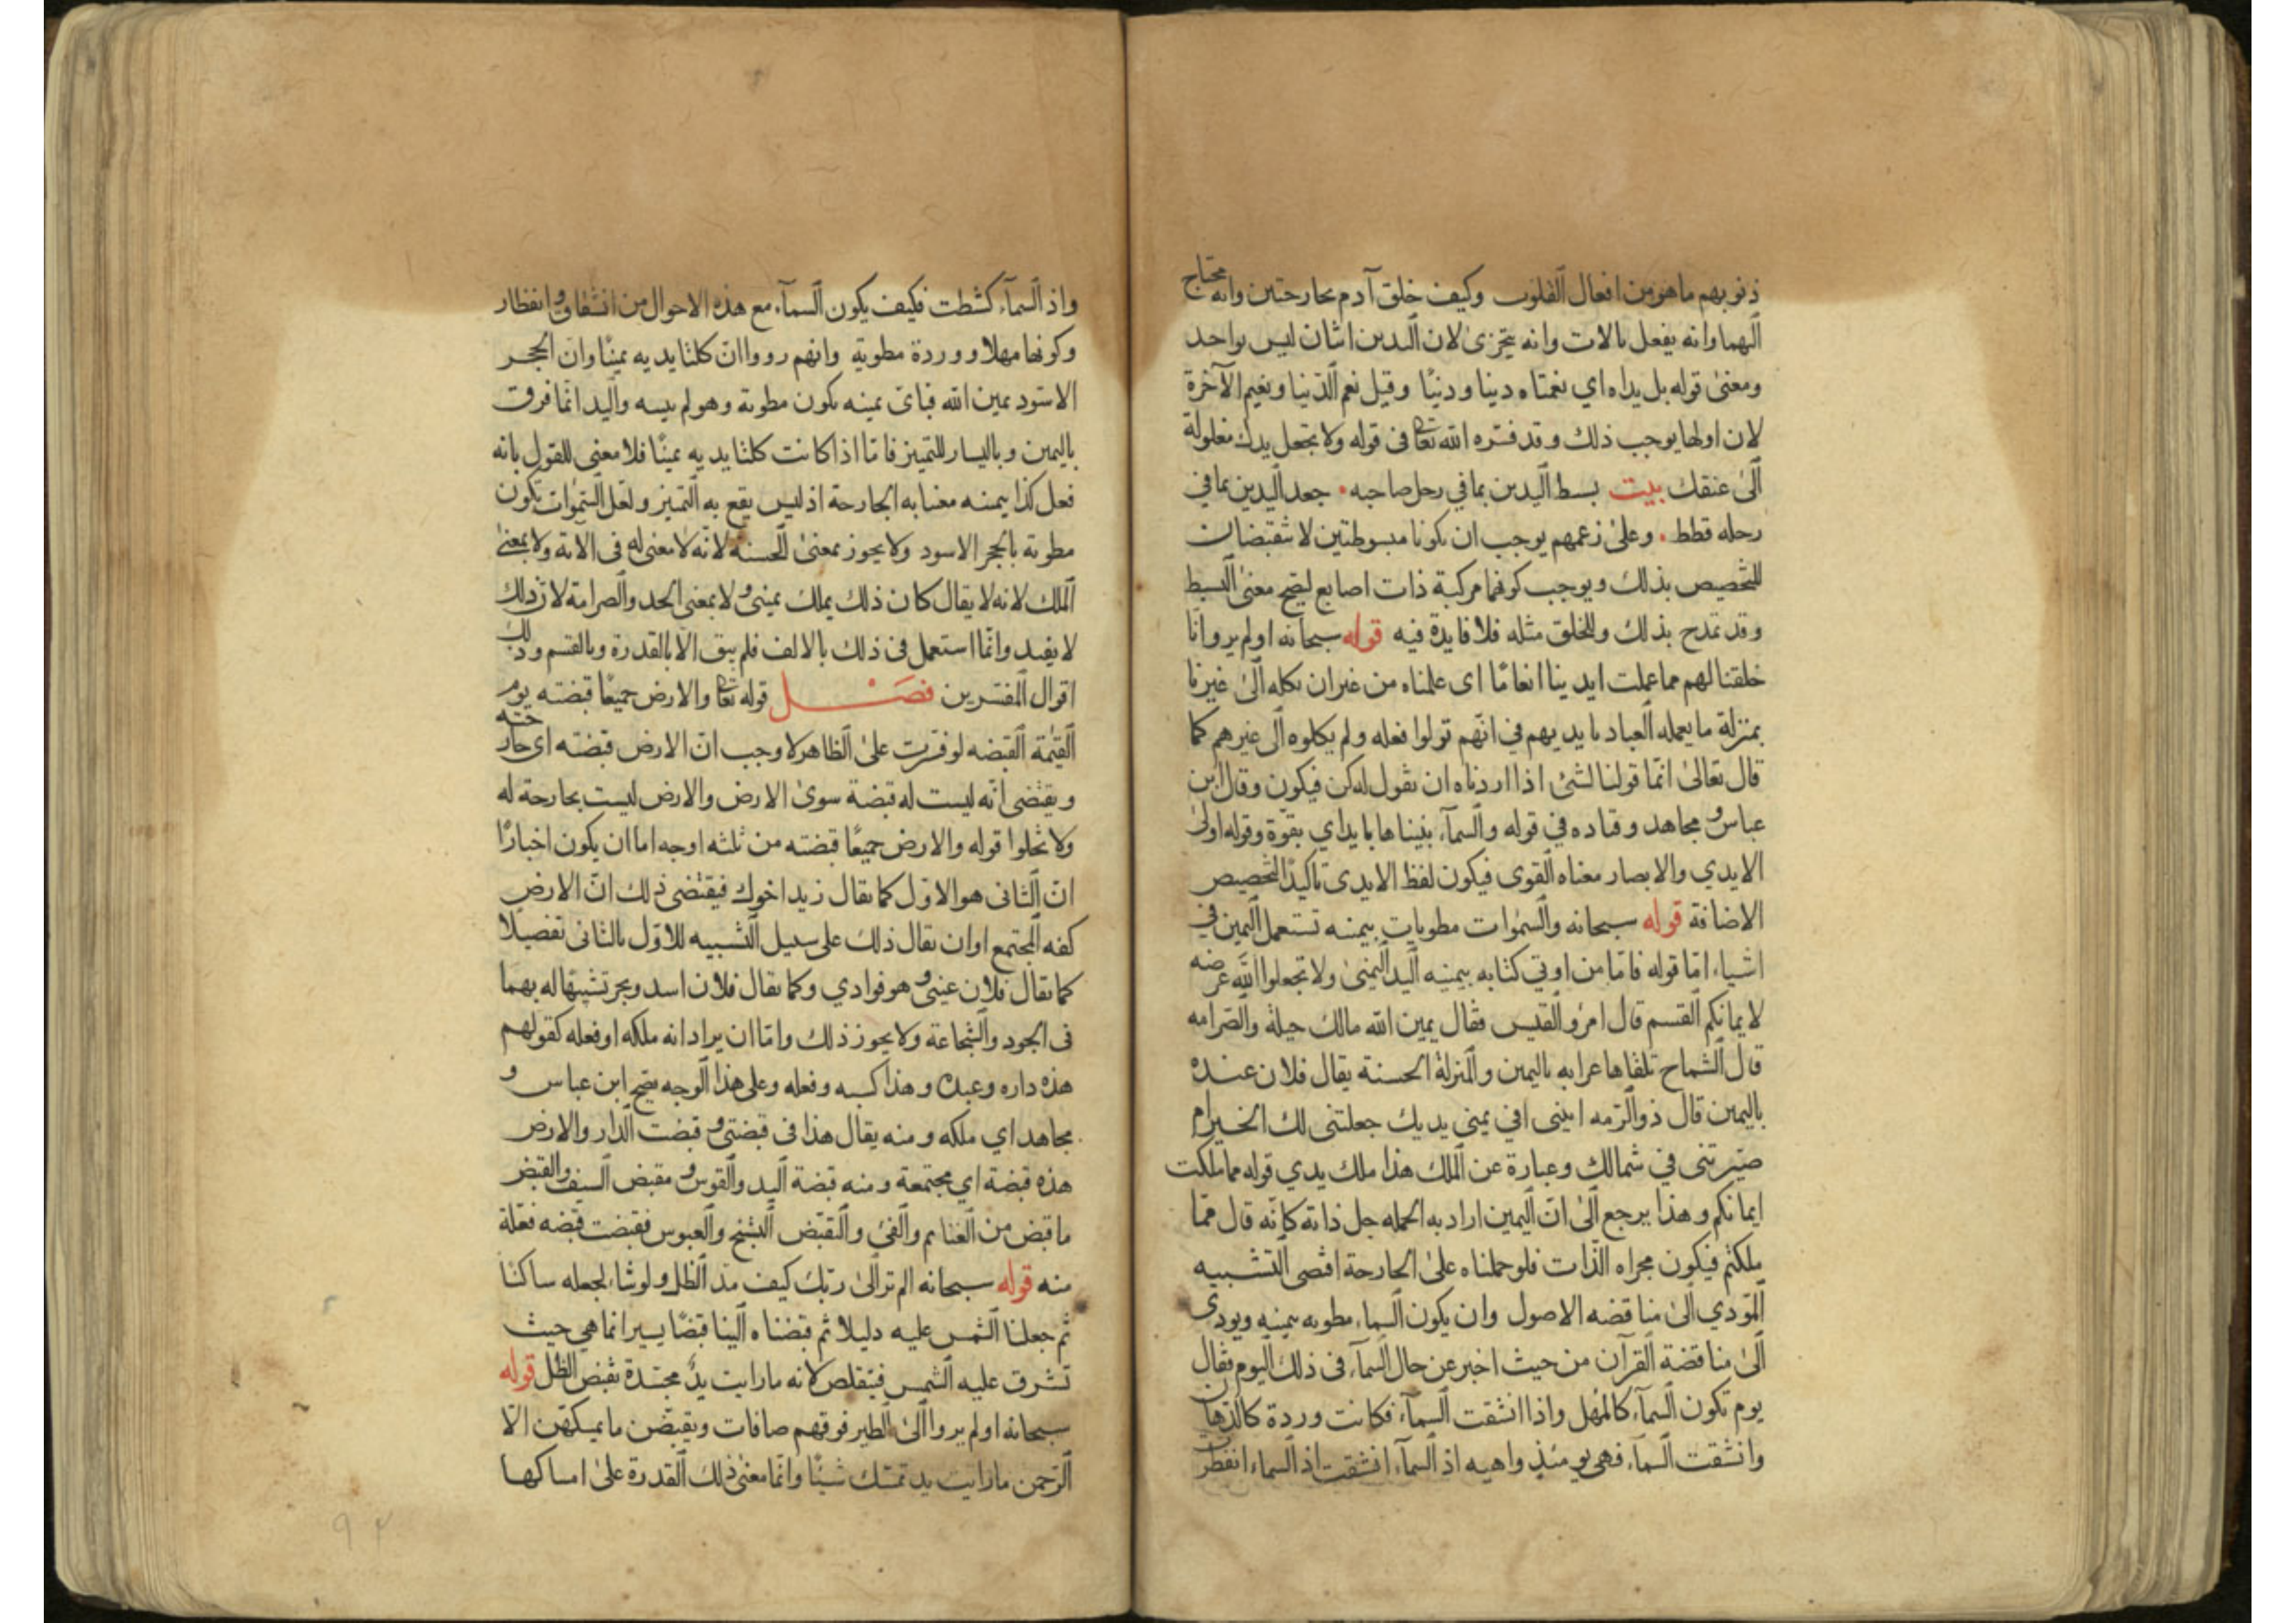 ذنوبهم ماهو من افعال القلوب وكيف خلق آدم بجارحتين وانه محتاج
اليهما وانه يفعل بالات وانه يتجزى لان اليدين اثنان ليس بواحد
ومعنى قوله بل يداه اي نعمتاه دينا ودنيًا وقيل نعم الدنيا ونعيم الآخرة
لان اولها يوجب ذلك وقد فسره الله تعا في قوله ولا تجعل يدك مغلولة
الى عنقك بيت بسط اليدين بما في رحل صاحبه . جعد اليدين بما في
رحله قطط . وعلى زعمهم يوجب ان تكونا مبسوطتين لا تنقبضان
للتخصيص بذلك ويوجب كونها مركبة ذات اصابع ليصح معنى البسط
وقد تمدح بذلك وللخلق مثله فلا فايدة فيه قوله سبحانه اولم يروا انا
خلقنا لهم مما عملت ايدينا انعامًا اى علمناه من غير ان نكله الى غيرنا
بمنزلة ما يعمله العباد بايديهم في انهم تولوا فعله ولم يكلوه الى غيرهم كما
قال تعالى انما قولنا لشئ اذا اردناه ان نقول له كن فيكون وقال ابن
عباس ومجاهد وقتاده في قوله والسمآء بنيناها بايد اي بقوة وقوله اولى
الايدي والابصار معناه القوى فيكون لفظ الايدى تاكيدًا لتخصيص
الاضافة قوله سبحانه والسموات مطويات بيمينه تستعمل اليمين في
اشياء امّا قوله فامّا من اوتي كتابه بيمينه اليد اليمنى ولا تجعلوا الله عرضه
لايمانكم القسم قال امرؤ القيس فقال يمين الله مالك حيلة والصرامه
قال الشماخ تلقاها عرابه باليمين والمنزلة الحسنة يقال فلان عنده
باليمين قال ذو الرمه ابيني افي يمنى يديك جعلتني لك الخير ام
صيرتنى في شمالك وعبارة عن الملك هذا ملك يدي قوله مما ملكت
ايمانكم وهذا يرجع الى ان اليمين اراد به الجمله جل ذاته كانه قال ممّا
ملكتم فيكون مجراه الذات فلو حملناه على الجارحة اقتضى التشبيه
المؤدي الى مناقضه الاصول وان يكون السماء مطويه بيمينه ويودى
الى مناقضة القرآن من حيث اخبر عن حال السمآء فى ذلك اليوم فقال
يوم تكون السمآء كالمهل واذا انشقت السمآء فكانت وردة كالدهان
وانشقت السمآء فهى يومئذ واهيه اذ السمآء انشقت اذ السماء انفطرت
واذ السمآء كشطت فكيف يكون السمآء مع هذه الاحوال من انشقاق وانفطار
وكونها مهلا ووردة مطوية وانهم رووا ان كلتا يديه يمينًا وان الحجر
الاسود يمين الله فباى يمينه يكون مطوية وهو لم يمسه واليد انما فرق
باليمين وباليسار للتمييز فامّا اذا كانت كلتا يديه يمينًا فلا معنى للقول بانه
فعل كذا بيمينه معنا به الجارحة اذ ليس يقع به التمييز ولعل السموات تكون
مطوية بالحجر الاسود ولا يجوز بمعنى الحسنه لانه لا معنى له فى الاية ولا بمعنى
الملك لانه لا يقال كان ذلك بملك يمينى ولا بمعنى الحد والصرامة لان ذلك
لا يفيد وانما استعمل فى ذلك بالالف فلم يبق الا بالقدرة وبالقسم وذلك
اقوال المفسرين فصــل قوله تعا والارض جميعًا قبضته يوم
القيمة القبضه لو فسرت على الظاهر لا وجب ان الارض قبضته اى جارحته
ويقتضى انه ليست له قبضة سوى الارض والارض ليست بجارحة له
ولا تخلوا قوله والارض جميعًا قبضته من ثلثه اوجه اما ان يكون اخبارًا
ان الثانى هو الاول كما يقال زيد اخوك فيقتضى ذلك ان الارض
كفه المجتمع او ان يقال ذلك على سبيل التشبيه للاول بالثانى تفضيلًا
كما يقال فلان عينى وهو فوادي وكما يقال فلان اسد وبحر تشبيهًا له بهما
فى الجود والشجاعة ولا يجوز ذلك وامّا ان يراد انه ملكه او فعله كقولهم
هذه داره وعبده وهذا كسبه وفعله وعلى هذا الوجه يصح ابن عباس و
مجاهد اي ملكه ومنه يقال هذا فى قبضتى وقبضت الدار والارض
هذه قبضة اي مجتمعة ومنه قبضة اليد والقوس ومقبض السيف والقبض
ما قبض من الغنايم والفئ والتقبض التشنج والعبوس فقبضت قبضه فعلة
منه قوله سبحانه الم تر الى ربك كيف مد الظل ولو شاء لجعله ساكنًا
ثم جعلنا الشمس عليه دليلا ثم قبضناه الينا قبضًا يسيرا انما هي حيث
تشرق عليه الشمس فيتقلص لانه ما رايت يدٌ مجتدة تقبض الظل قوله
سبحانه اولم يروا الى الطير فوقهم صافات ويقبضن ما يمسكهن الا
الرحمن ما رايت يد تمسك شيئًا وانما معنى ذلك القدرة على امساكها
٩٢